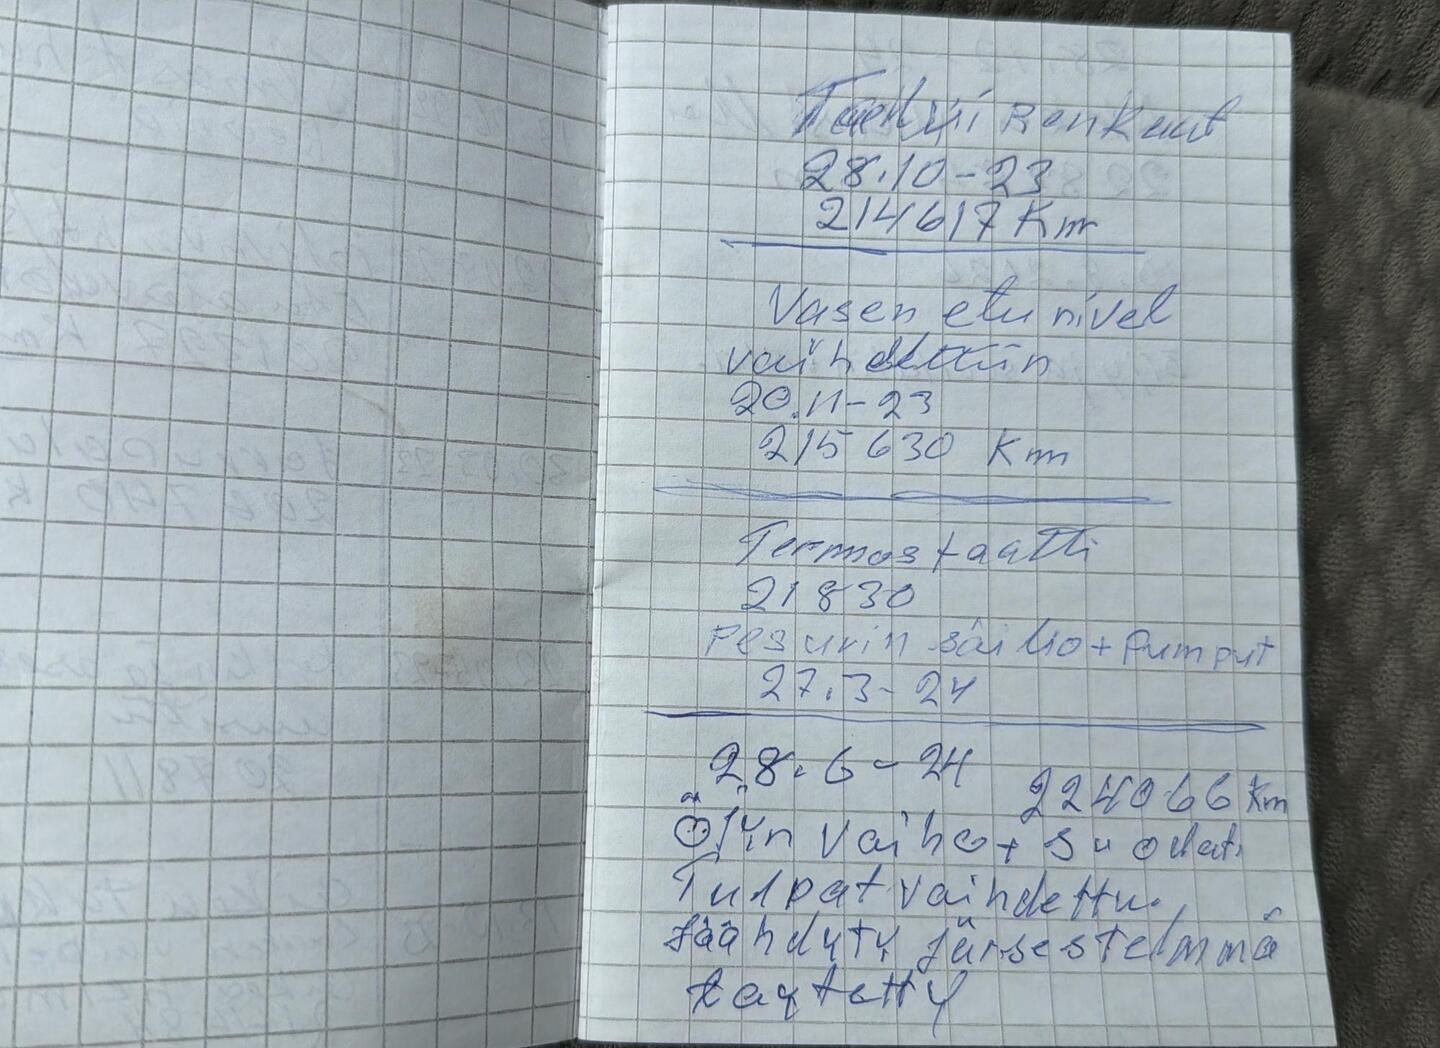 Talvi Renkaat
28.10-23
214617 Km
Vasen etu nivel
vaihdettiin
20.11-23
215630 Km
Termostaatti
21830
Pesurin säiliö + Pumput
27.3-24
28.6-24
224066 Km
Öljyn vaiho + suodat.
Tulpat vaihdettu.
Jäähdyty järsestelmmä
täytetty